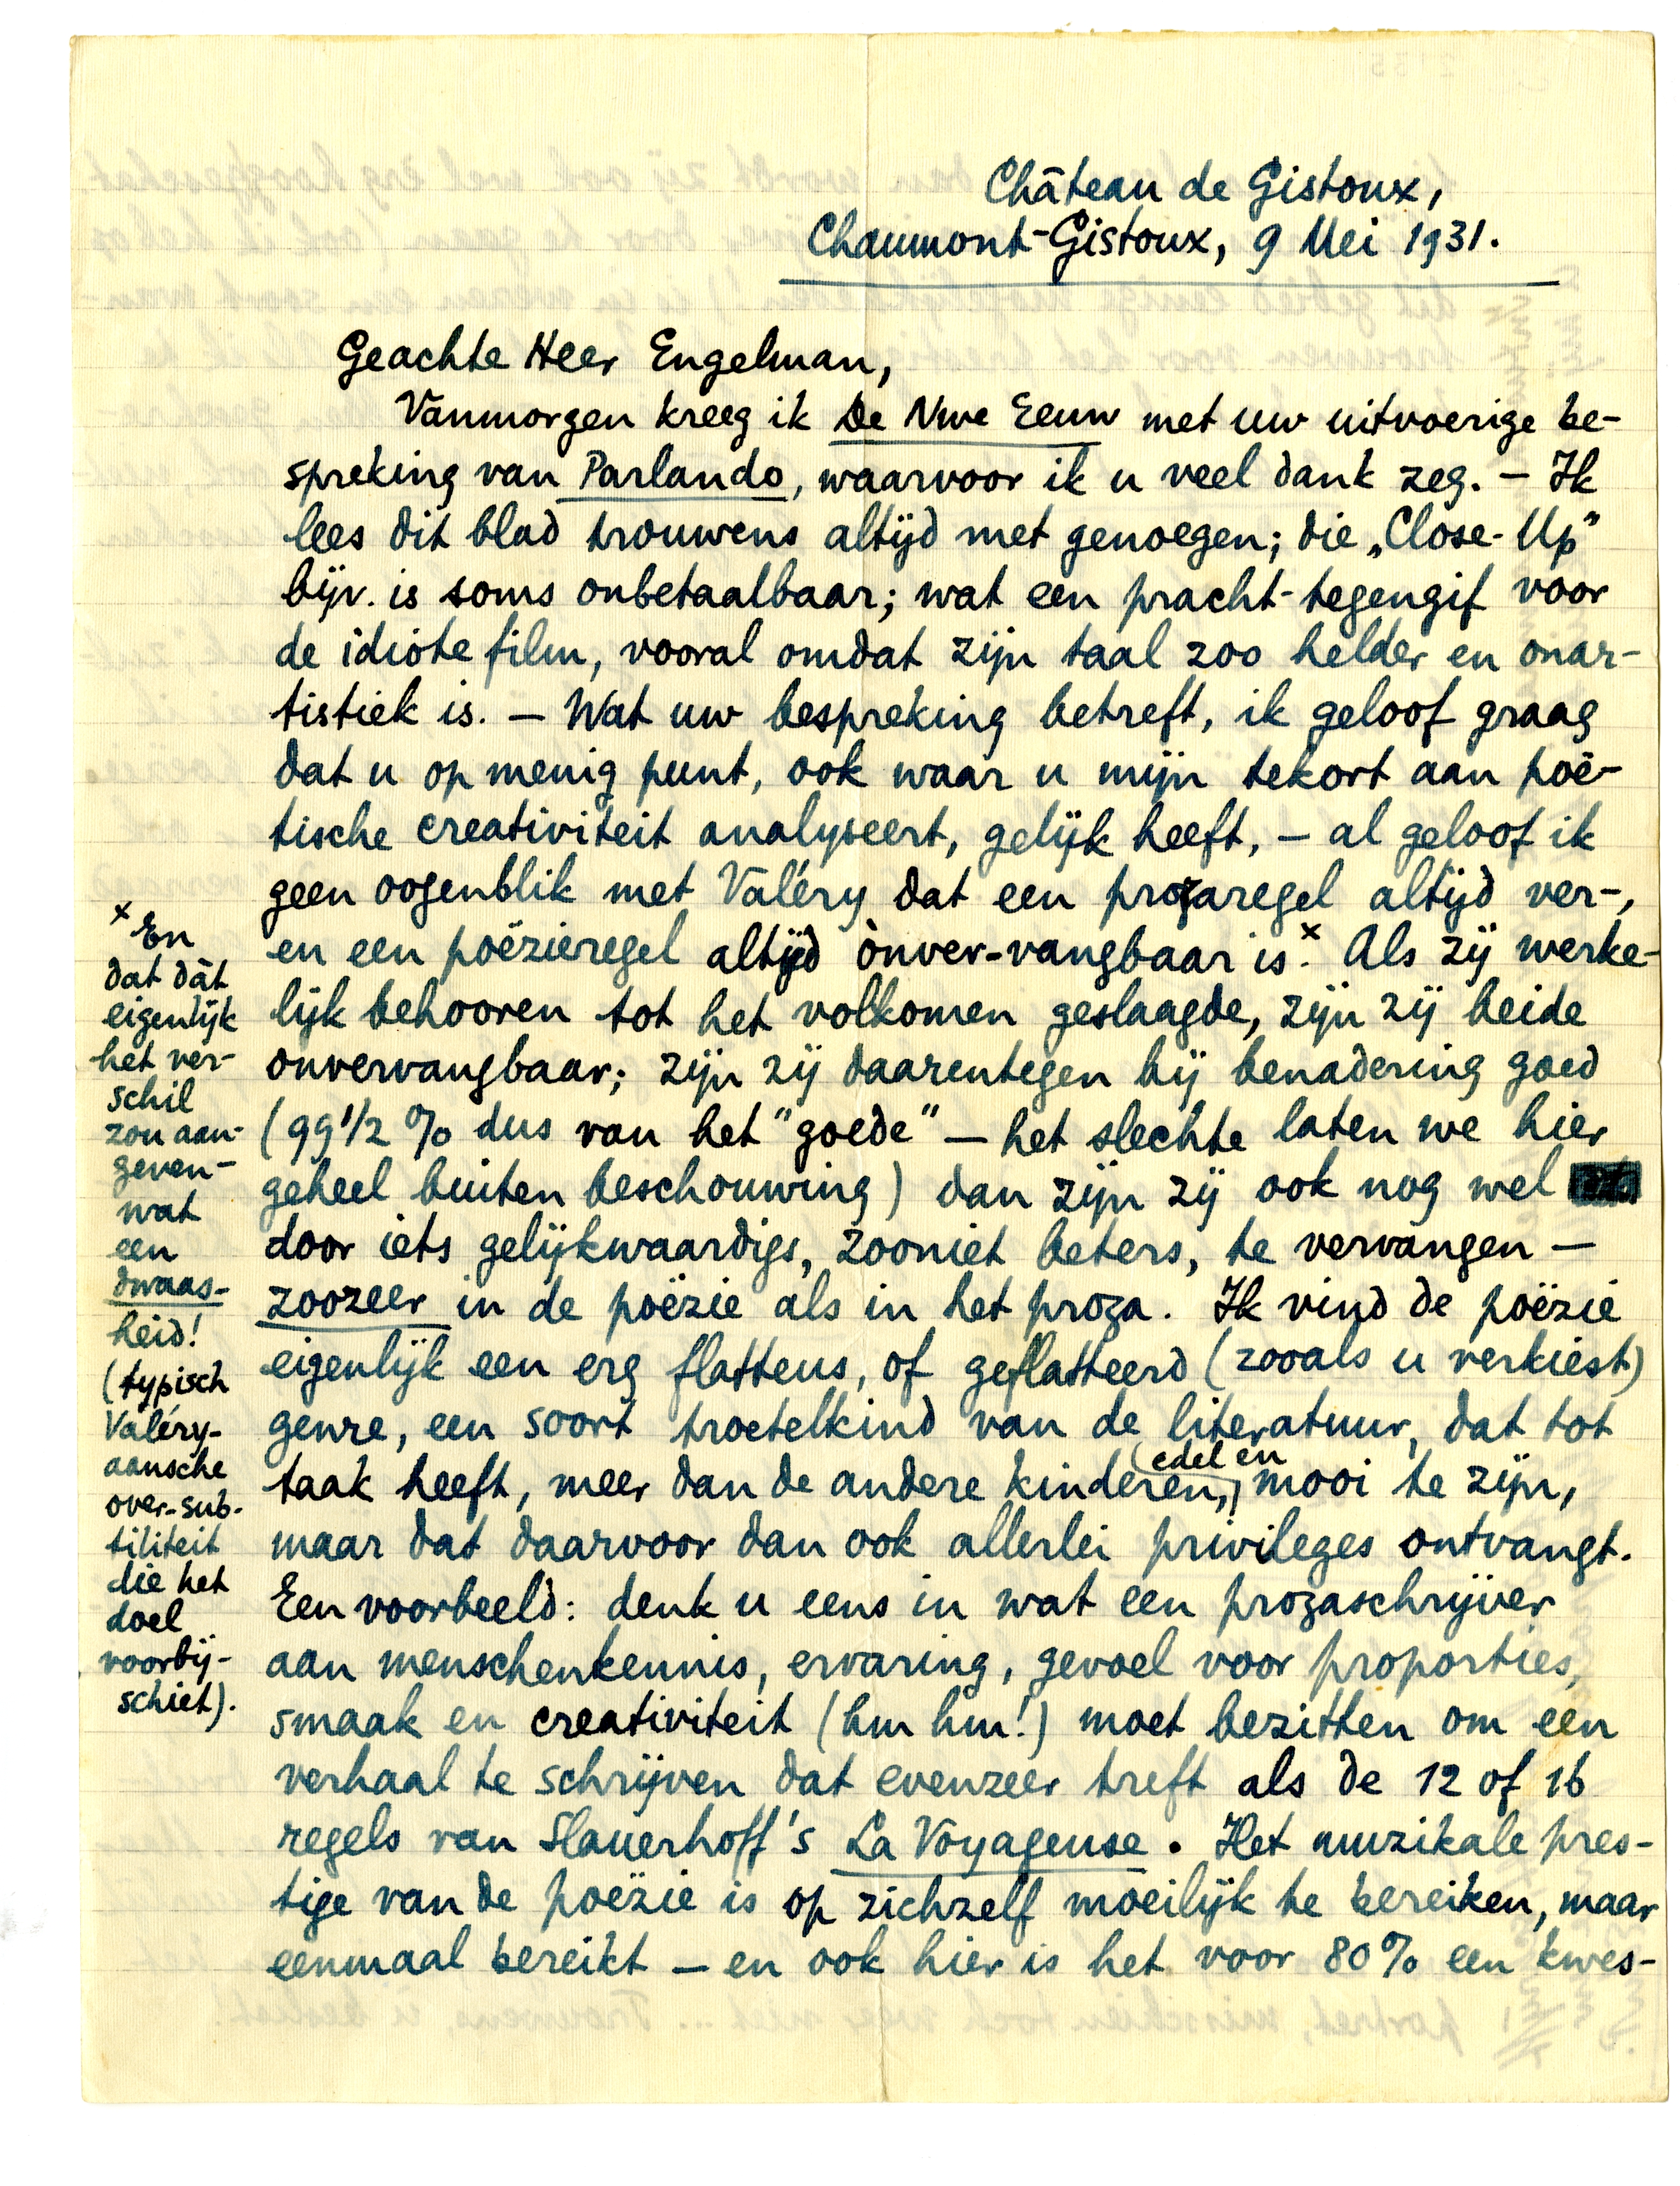 Château de Gistoux,
Chaumont-Gistoux, 9 Mei 1931.
Geachte Heer Engelman,
Vanmorgen kreeg ik De Nwe Eeuw met uw uitvoerige be-
spreking van Parlando, waarvoor ik u veel dank zeg. — Ik
lees dit blad trouwens altijd met genoegen; die „Close-Up"
bijv. is soms onbetaalbaar; wat een pracht-tegengif voor
de idiote film, vooral omdat zijn taal zoo helder en onar-
tistiek is. — Wat uw bespreking betreft, ik geloof graag
dat u op menig punt, ook waar u mijn tekort aan poë-
tische creativiteit analyseert, gelijk heeft, — al geloof ik
geen oogenblik met Valéry dat een prozaregel altijd ver-,
en een poëzieregel altijd ònver-vangbaar is.x Als zij werke-
lijk behooren tot het volkomen geslaagde, zijn zij beide
onvervangbaar; zijn zij daarentegen bij benadering goed
(99 1/2 % dus van het "goede" — het slechte laten we hier
geheel buiten beschouwing) dan zijn zij ook nog wel
door iets gelijkwaardigs, zooniet beters, te vervangen —
zoozeer in de poëzie als in het proza. Ik vind de poëzie
eigenlijk een erg flatteus, of geflatteerd (zooals u verkiest)
genre, een soort troetelkind van de literatuur, dat tot
taak heeft, meer dan de andere kinderen, edel en mooi te zijn,
maar dat daarvoor dan ook allerlei privileges ontvangt.
Een voorbeeld: denk u eens in wat een prozaschrijver
aan menschenkennis, ervaring, gevoel voor proporties,
smaak en creativiteit (hm hm!) moet bezitten om een
verhaal te schrijven dat evenzeer treft als de 12 of 16
regels van Slauerhoff's La Voyageuse. Het muzikale pres-
tige van de poëzie is op zichzelf moeilijk te bereiken, maar
eenmaal bereikt — en ook hier is het voor 80% een kwes-
x En
dat dàt
eigenlijk
het ver-
schil
zou aan-
geven —
wat
een
dwaas-
heid!
(typisch
Valéry-
aansche
over-sub-
tiliteit
die het
doel
voorbij-
schiet).